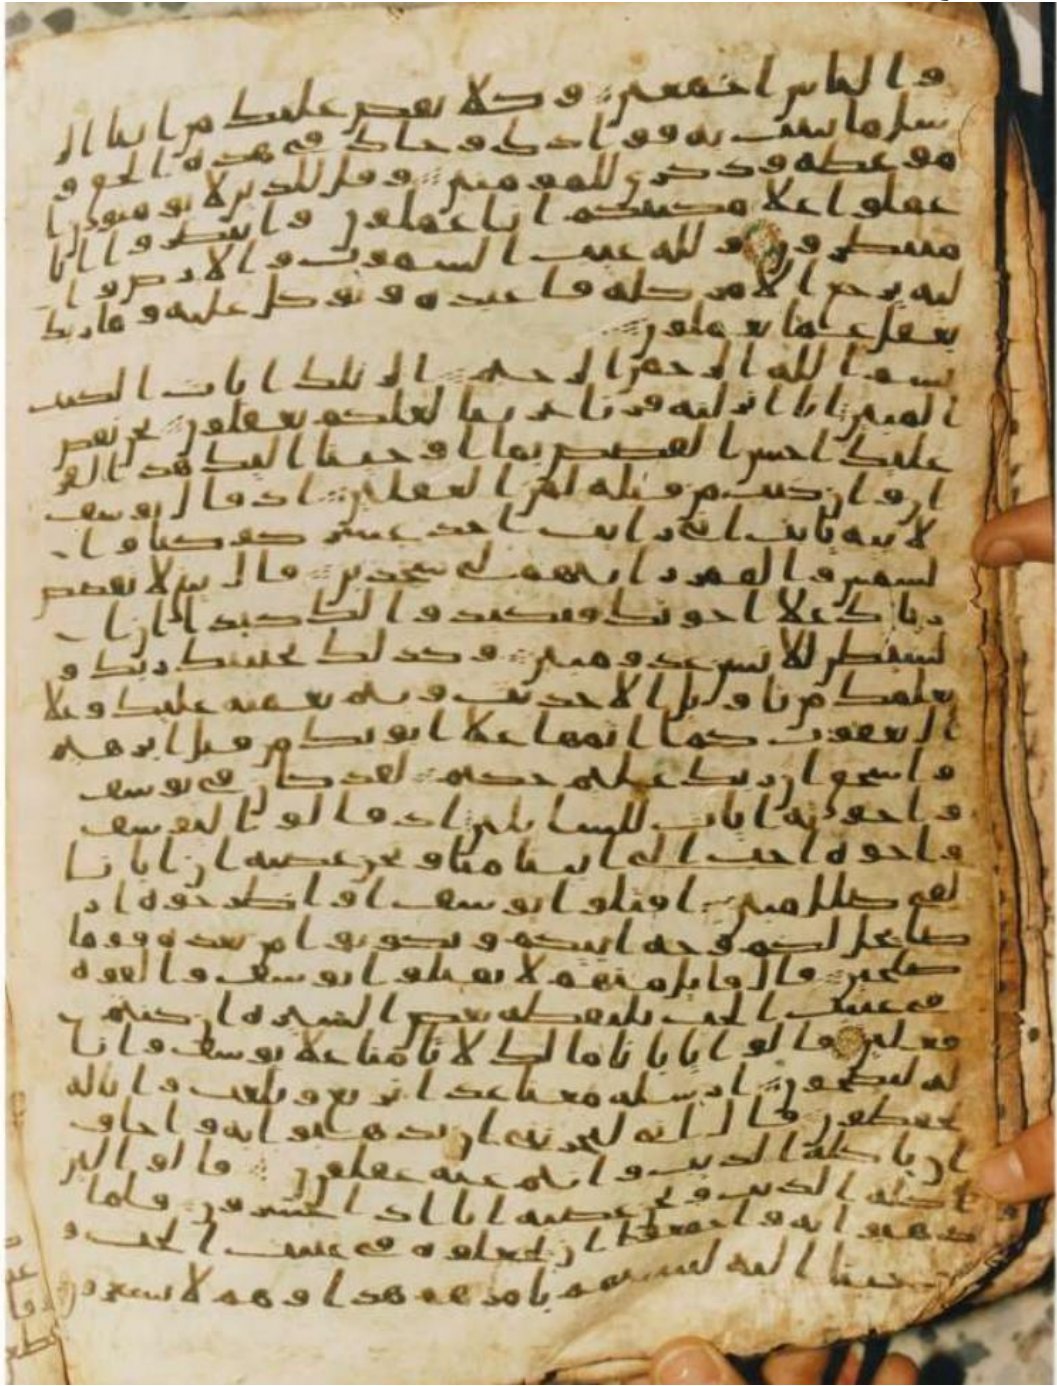 و الناس اجمعين وكلا نقص عليك من انبا الر
سل ما نثبت به فوادك وجاك في هذه الحق و
موعظه وذكرى للمومنين وقل للذين لا يومنون ا
عملوا علا مكنتكم انا عملون وانتظروا انا
منتظرون ولله غيب السموت والارض وا
ليه يرجع الامر كله فاعبده وتوكل عليه وما ربك
بغفل عما تعملون
بسم الله الرحمن الرحيم الر تلك ايات الكتب
المبين انا انزلنه قرنا عربيا لعلكم تعقلون نحن نقص
عليك احسن القصص بما اوحينا اليك هذا القر
ان وان كنت من قبله لمن الغفلين اذ قال يوسف
لابيه يابت اني رايت احد عشر كوكبا وا
لشمس والقمر رايتهم لي سجدين قال يبني لا تقصص
رياك علا اخوتك فيكيدوا لك كيدا ان ا
لشيطن للانسن عدو مبين وكذلك يجتبيك ربك و
يعلمك من تاويل الاحديث ويتم نعمته عليك وعلا
ال يعقوب كما اتمها علا ابويك من قبل ابرهيم
واسحق ان ربك عليم حكيم لقد كان في يوسف
واخوته ايات للسايلين اذ قالوا ليوسف
واخوه احب الى ابينا منا ونحن عصبه ان ابانا
لفي ضلل مبين اقتلوا يوسف او اطرحوه ار
ضا يخل لكم وجه ابيكم وتكونوا من بعده قوما
صلحين قال قايل منهم لا تقتلوا يوسف والقوه
في غيبت الجب يلتقطه بعض السيره ان كنتم
فعلين قالوا يابانا ما لك لا تامنا علا يوسف وانا
له لنصحون ارسله معنا غدا نرتع ونلعب وانا له
لحفظون قال اني ليحزنني ان تذهبوا به واخاف
ان ياكله الذيب وانتم عنه غفلون قالوا لين
اكله الذيب ونحن عصبه انا اذا لخسرون فلما
ذهبوا به واجمعوا ان يجعلوه في غيبت الجب و
اوحينا اليه لتنبينهم بامرهم هذا وهم لا يشعرون